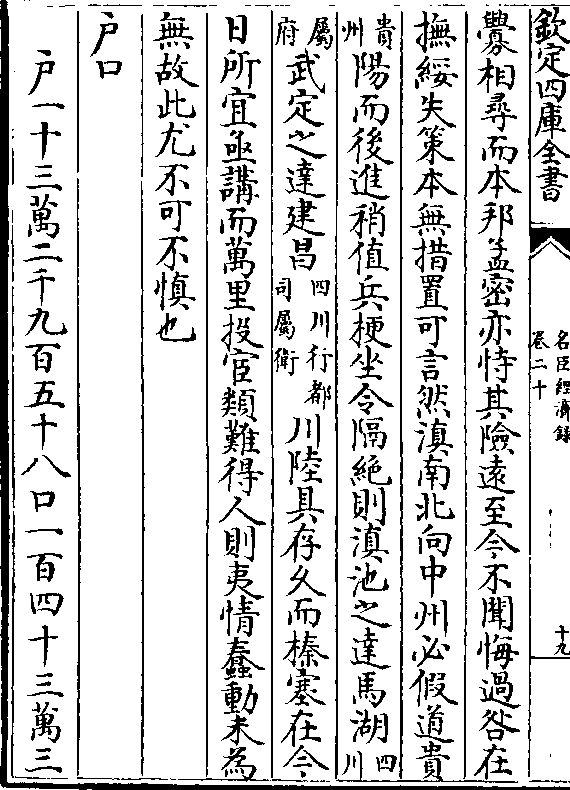 欽定四庫全書
名臣經濟錄
卷二十
十九
釁相尋而本邦孟密亦恃其險遠至今不聞悔過咎在
撫綏失策本無措置可言然滇南北向中州必假道貴
貴州
陽而後進稍值兵梗坐令隔絶則滇池之達馬湖
四川
屬府
武定之達建昌
四川行都
司屬衛
川陸具存久而榛塞在今
日所宜亟講而萬里投宦類難得人則夷情蠢動未為
無故此尤不可不慎也
户口
户一十三萬二千九百五十八口一百四十三萬三